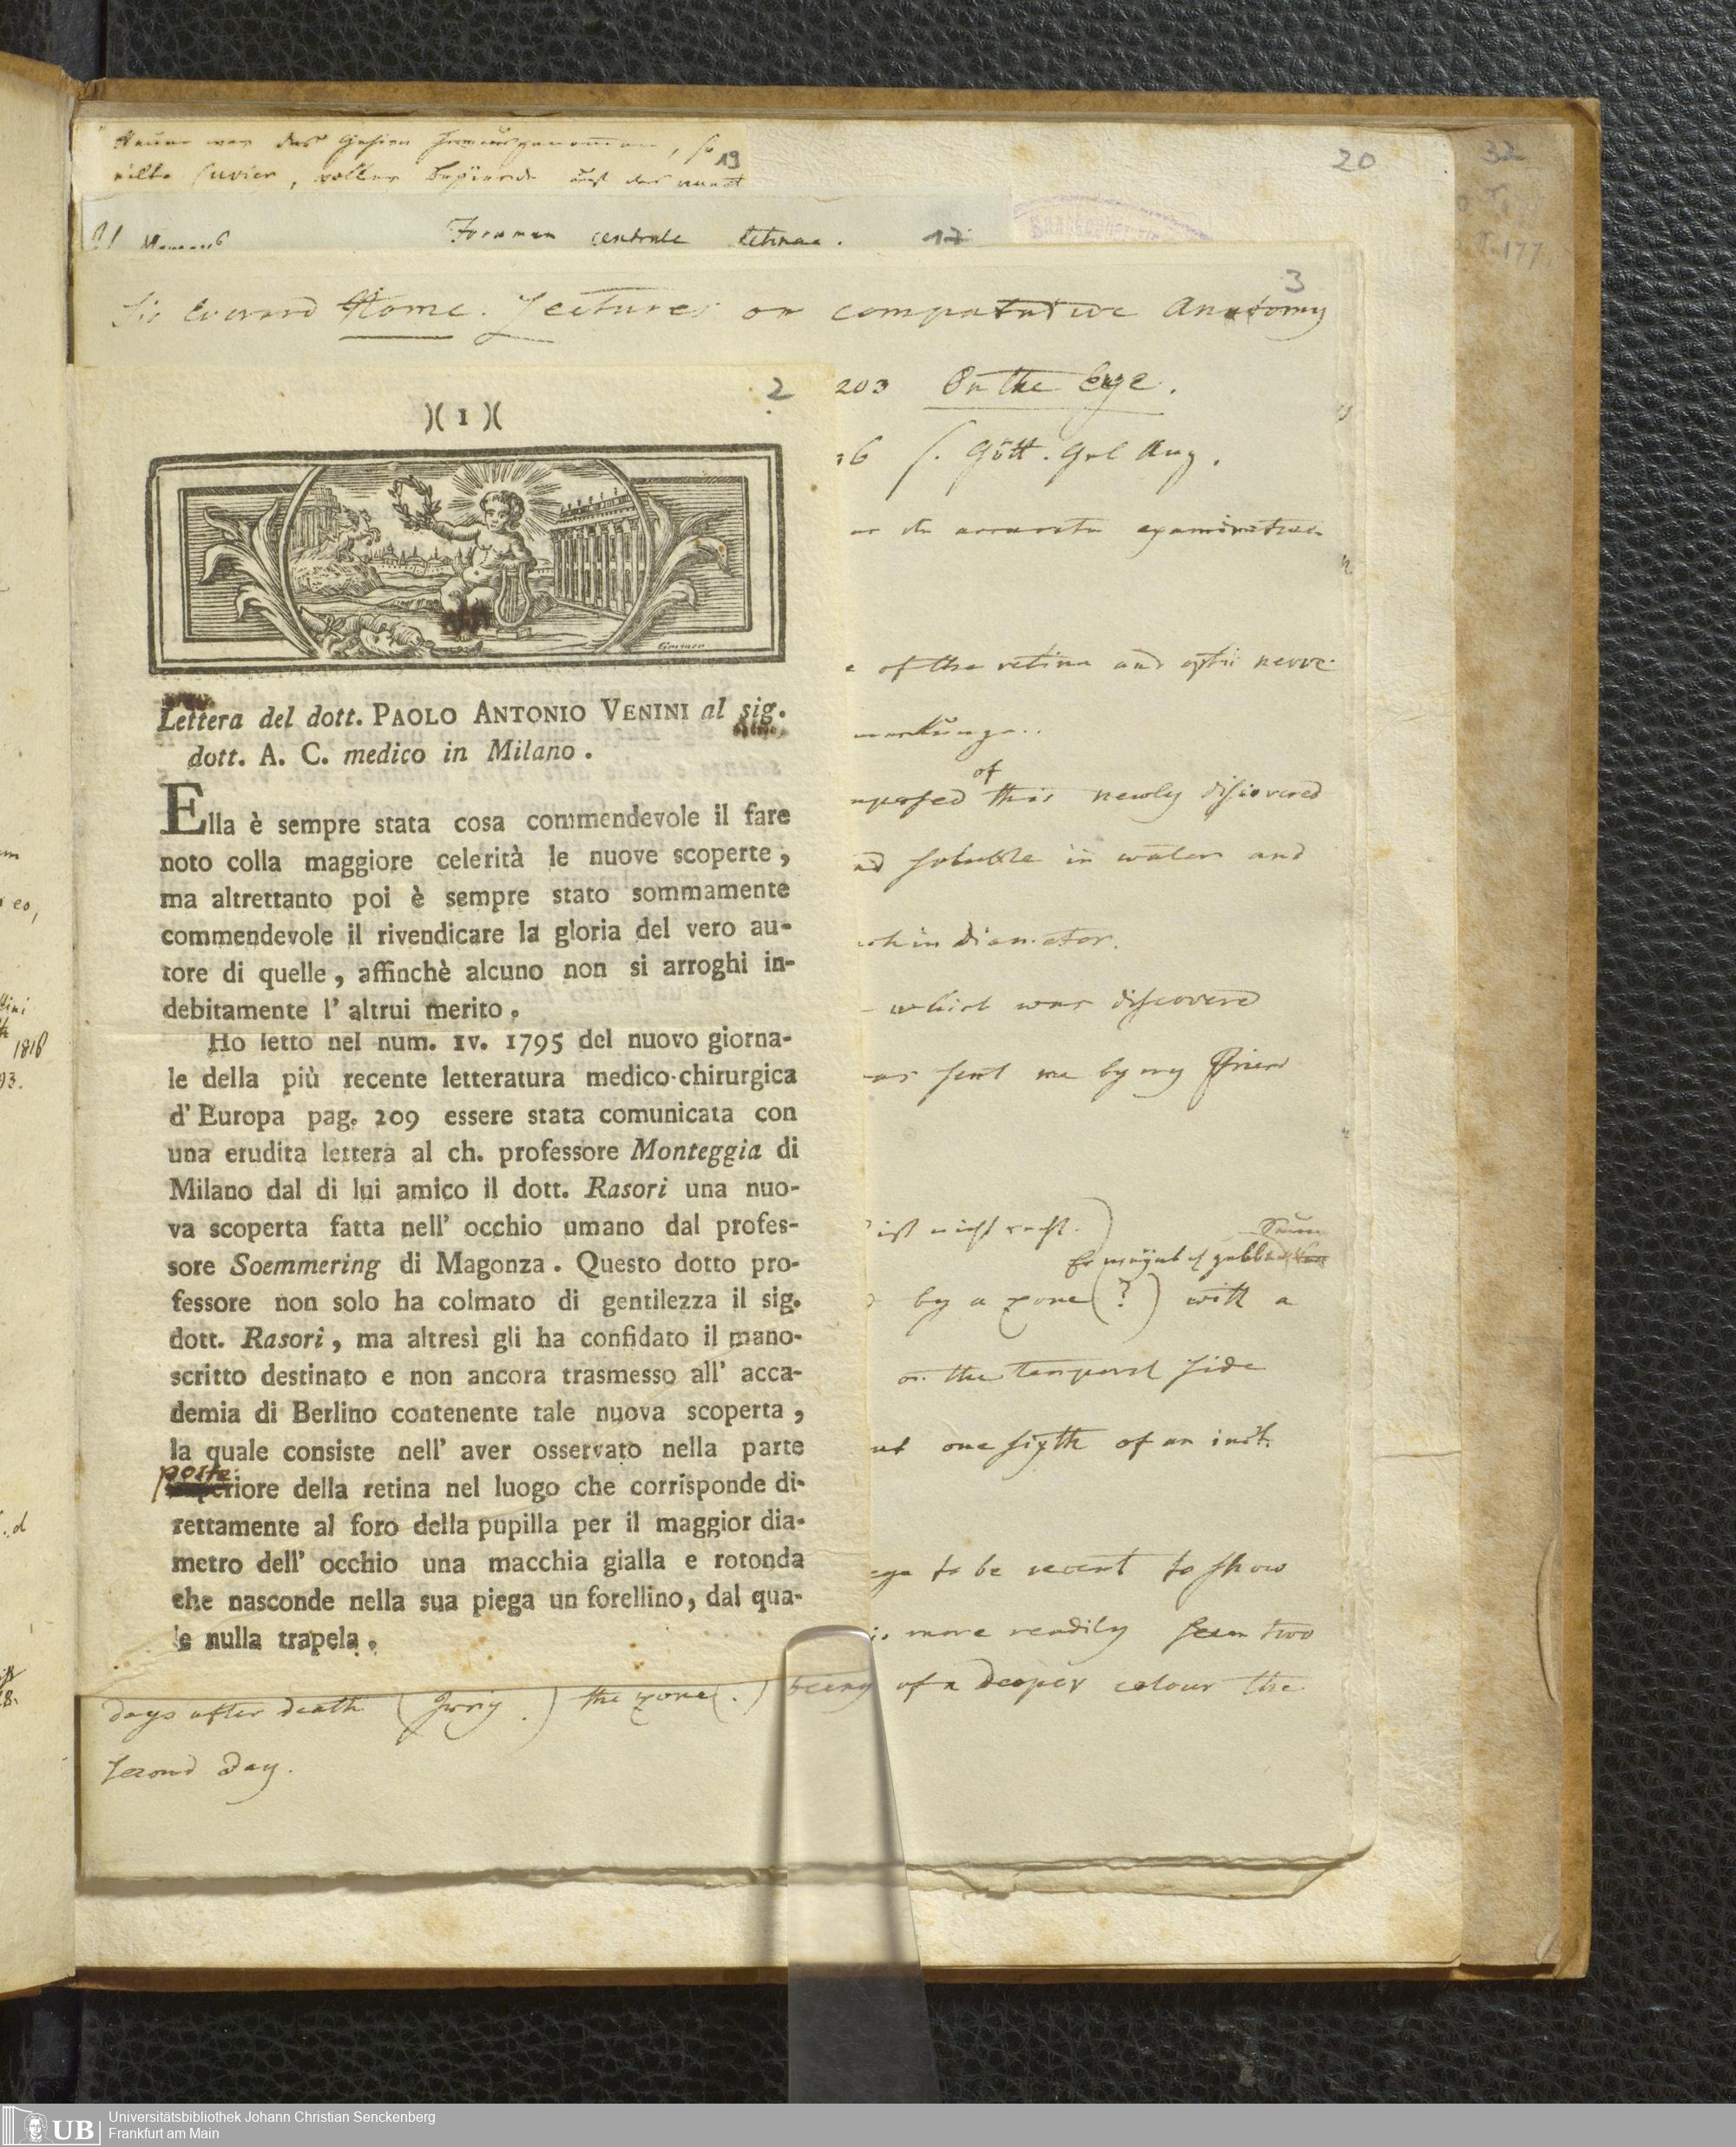 19
20
32
Foramen centrale retinae. 17
3
Sir Everard Home. Lectures on comparative Anatomy
2
203 On the Eye.
)( 1 )(
s. Gött. Gel Anz.
examination
of the retina and optic nerve
Lettera del dott. PAOLO ANTONIO VENINI al sig.
dott. A. C. medico in Milano.
Ella è sempre stata cosa commendevole il fare
noto colla maggiore celerità le nuove scoperte,
ma altrettanto poi è sempre stato sommamente
commendevole il rivendicare la gloria del vero au-
tore di quelle, affinchè alcuno non si arroghi in-
debitamente l' altrui merito.
Ho letto nel num. IV. 1795 del nuovo giorna-
le della più recente letteratura medico-chirurgica
d' Europa pag. 209 essere stata comunicata con
una erudita lettera al ch. professore Monteggia di
Milano dal di lui amico il dott. Rasori una nuo-
va scoperta fatta nell' occhio umano dal profes-
sore Soemmering di Magonza. Questo dotto pro-
fessore non solo ha colmato di gentilezza il sig.
dott. Rasori, ma altresì gli ha confidato il mano-
scritto destinato e non ancora trasmesso all' acca-
demia di Berlino contenente tale nuova scoperta,
la quale consiste nell' aver osservato nella parte
poste
riore della retina nel luogo che corrisponde di-
rettamente al foro della pupilla per il maggior dia-
metro dell' occhio una macchia gialla e rotonda
che nasconde nella sua piega un forellino, dal qua-
le nulla trapela.
of
this newly discovered
soluble in water and
in diameter.
which was discovered
sent me by my Friend
ist nicht recht.)
by a zone (?) with a
on the temporal side
one sixth of an inch
to be recent to show
more readily seen two
days after death ( ) the zone (.) being of a deeper colour the
second day.
UB Universitätsbibliothek Johann Christian Senckenberg
Frankfurt am Main